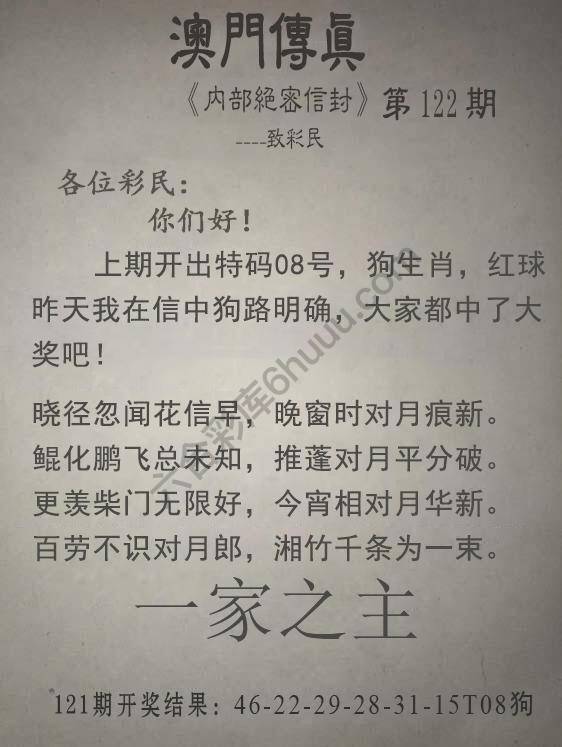 澳門傳眞
《内部絕密信封》第122期
----致彩民
各位彩民：
你们好！
上期开出特码08号，狗生肖，红球
昨天我在信中狗路明确，大家都中了大
奖吧！
晓径忽闻花信早，晚窗时对月痕新。
鲲化鹏飞总未知，推蓬对月平分破。
更羡柴门无限好，今宵相对月华新。
百劳不识对月郎，湘竹千条为一束。
一家之主
121期开奖结果：46-22-29-28-31-15T08狗
六合彩库6huuu.com